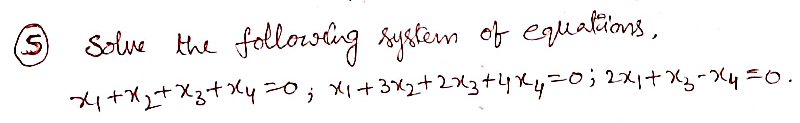 ⑤ Solve the following system of equations,
x₁+x₂+x₃+x₄=0; x₁+3x₂+2x₃+4x₄=0; 2x₁+x₃-x₄=0.